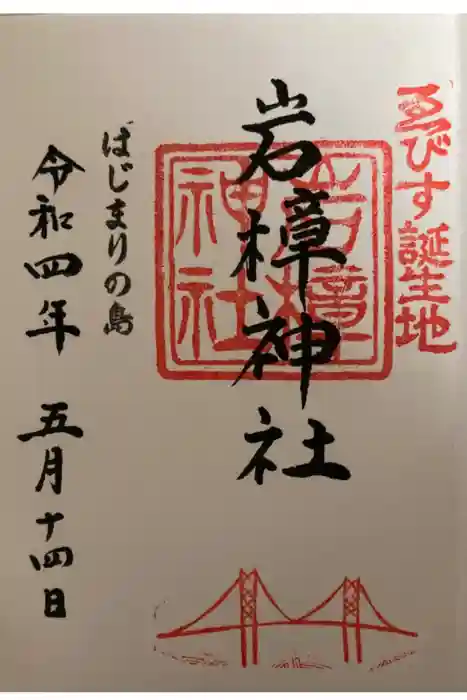 ゑびす誕生地
岩樟神社
岩樟
神社
はじまりの島
令和四年 五月十四日